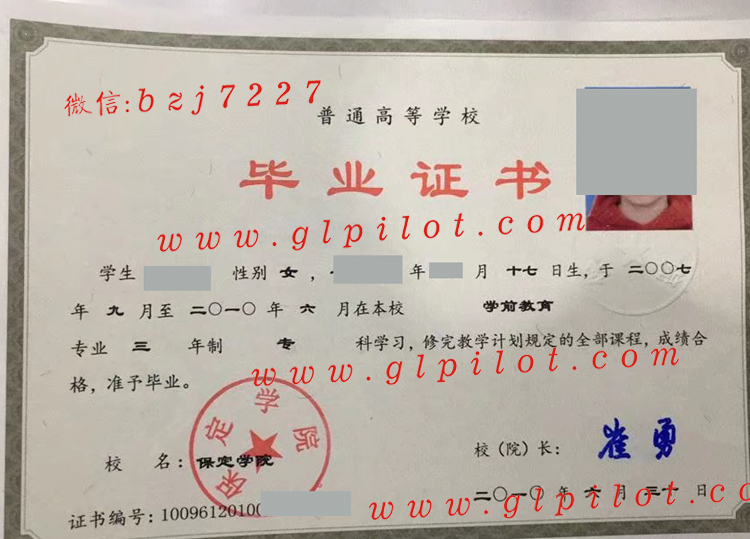 微信:bzj7227
普通高等学校
毕业证书
www.glpilot.com
学生 性别 女 , 年 月 十七 日生, 于 二〇〇七
年 九 月至 二〇一〇 年 六 月在本校 学前教育
专业 三 年制 专 科学习, 修完教学计划规定的全部课程, 成绩合
www.glpilot.com
格, 准予毕业。
保定学院
校 名: 保定学院
校(院)长: 崔勇
二〇一〇 年 六 月 三十 日
www.glpilot.co
证书编号: 10096120100